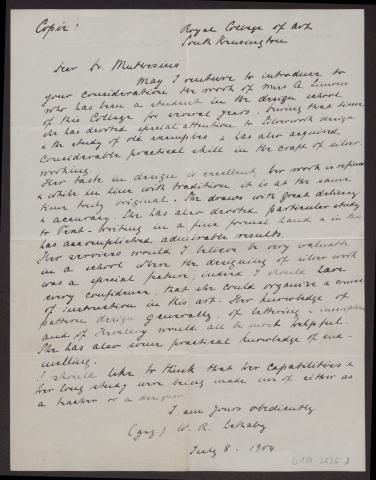 Copie:
Royal College of Art
South Kensington
Dear Dr. Muthesius
May I venture to introduce to
your consideration the work of Miss A. Simon
who has been a student in the design school
of this College for several years. During that time
she has devoted special attention to silverwork design
& the study of old examples & has also acquired
considerable practical skill in the craft of silver
working.
Her taste in design is excellent, her work is refined
& while in line with tradition, it is at the same
time truly original. She draws with great delicacy
& accuracy. She has also devoted particular study
to Text-writing in a fine formal hand & in this
has accomplished admirable results.
Her services would I believe be very valuable
in a school where the designing of silver work
was a special feature, indeed I should have
every confidence, that she could organise a course
of instruction in this art. Her knowledge of
pattern design generally, of lettering &
and of Heraldry would all be most helpful.
She has also some practical knowledge of ena-
melling.
I should like to think that her capabilities &
her long study were being made use of either as
a teacher or a designer
I am yours obediently
(gez.) W. R. Lethaby
July 8. 1904